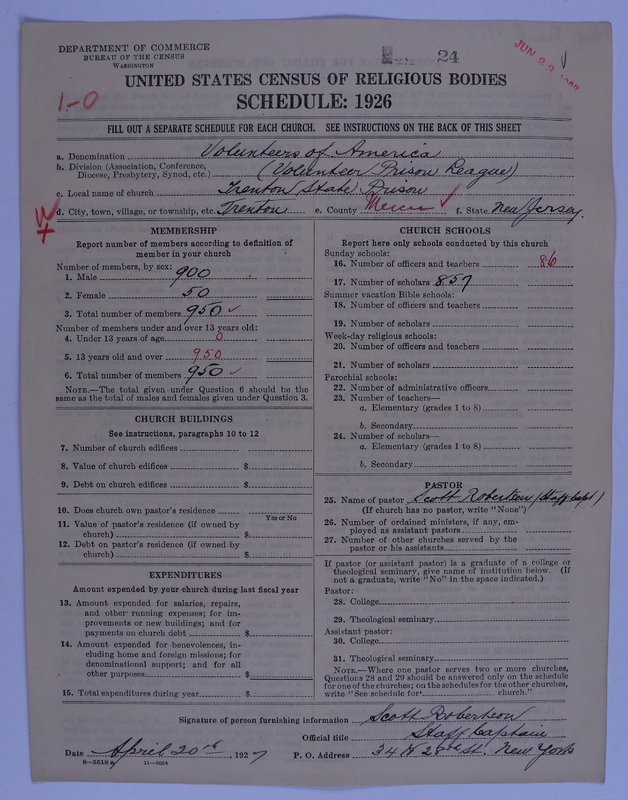 DEPARTMENT OF COMMERCE
BUREAU OF THE CENSUS
WASHINGTON
24
JUN 29
1-0
UNITED STATES CENSUS OF RELIGIOUS BODIES
SCHEDULE: 1926
FILL OUT A SEPARATE SCHEDULE FOR EACH CHURCH. SEE INSTRUCTIONS ON THE BACK OF THIS SHEET
a. Denomination Volunteers of America
b. Division (Association, Conference, Diocese, Presbytery, Synod, etc.) (Volunteer Prison League)
c. Local name of church Trenton State Prison
d. City, town, village, or township, etc. Trenton e. County Mercer f. State New Jersey.
MEMBERSHIP
Report number of members according to definition of
member in your church
Number of members, by sex:
1. Male 900
2. Female 50
3. Total number of members 950
Number of members under and over 13 years old:
4. Under 13 years of age 0
5. 13 years old and over 950
6. Total number of members 950
NOTE.—The total given under Question 6 should be the
same as the total of males and females given under Question 3.
CHURCH BUILDINGS
See instructions, paragraphs 10 to 12
7. Number of church edifices
8. Value of church edifices $
9. Debt on church edifices $
10. Does church own pastor's residence
Yes or No
11. Value of pastor's residence (if owned by
church) $
12. Debt on pastor's residence (if owned by
church) $
EXPENDITURES
Amount expended by your church during last fiscal year
13. Amount expended for salaries, repairs,
and other running expenses; for im-
provements or new buildings; and for
payments on church debt $
14. Amount expended for benevolences, in-
cluding home and foreign missions; for
denominational support; and for all
other purposes $
15. Total expenditures during year $
CHURCH SCHOOLS
Report here only schools conducted by this church
Sunday schools:
16. Number of officers and teachers 86
17. Number of scholars 857
Summer vacation Bible schools:
18. Number of officers and teachers
19. Number of scholars
Week-day religious schools:
20. Number of officers and teachers
21. Number of scholars
Parochial schools:
22. Number of administrative officers
23. Number of teachers—
a. Elementary (grades 1 to 8)
b. Secondary
24. Number of scholars—
a. Elementary (grades 1 to 8)
b. Secondary
PASTOR
25. Name of pastor Scott Robertson (Staff Capt)
(If church has no pastor, write "None")
26. Number of ordained ministers, if any, em-
ployed as assistant pastors
27. Number of other churches served by the
pastor or his assistants
If pastor (or assistant pastor) is a graduate of a college or
theological seminary, give name of institution below. (If
not a graduate, write "No" in the space indicated.)
Pastor:
28. College
29. Theological seminary
Assistant pastor:
30. College
31. Theological seminary
NOTE.—Where one pastor serves two or more churches,
Questions 28 and 29 should be answered only on the schedule
for one of the churches; on the schedules for the other churches,
write "See schedule for church."
Signature of person furnishing information Scott Robertson
Official title Staff Captain
Date April 20th, 1927 P. O. Address 34 W 28th St. New York
8—5518a 11—9054